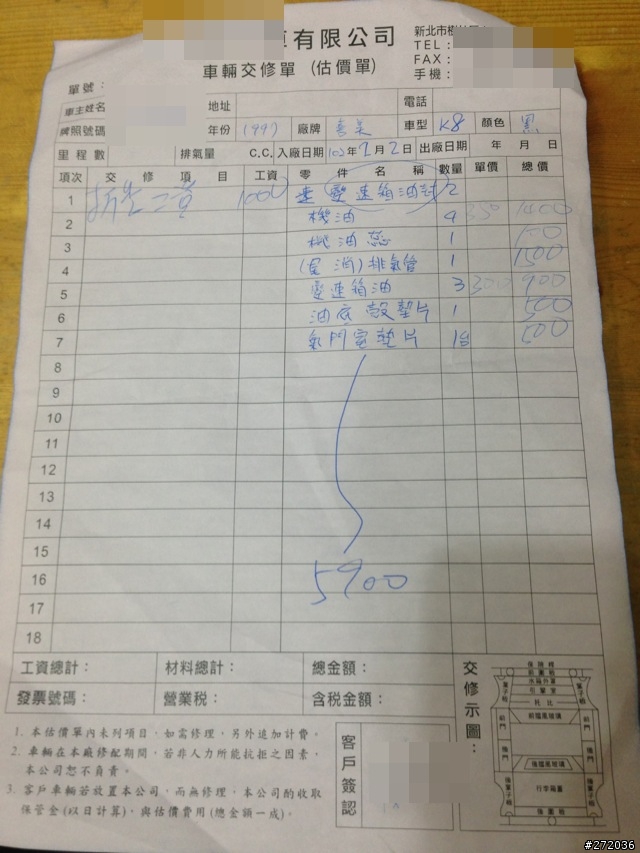 車有限公司
新北市樹林
車輛交修單 (估價單)
TEL:
FAX:
手機:
單號:
車主姓名 地址 電話
牌照號碼 年份 1997 廠牌 喜美 車型 K8 顏色 黑
里程數 排氣量 C.C. 入廠日期 102年2月2日 出廠日期 年 月 日
項次 交修項目 工資 零件名稱 數量 單價 總價
1 1000 變速箱油 2
2 機油 4 350 1400
3 機油蕊 1 100
4 排氣管 1 1500
5 變速箱油 3 300 900
6 油底殼墊片 1 500
7 氣門室墊片 1台 500
8
9
10
11
12
13
14
15
16 5900
17
18
工資總計: 材料總計: 總金額:
發票號碼: 營業稅: 含稅金額:
交修示圖:
1. 本估價單內未列項目,如需修理,另外追加計費。
2. 車輛在本廠修配期間,若非人力所能抗拒之因素,
本公司恕不負責。
3. 客戶車輛若放置本公司,而無修理,本公司酌收取
保管金(以日計算),與估價費用(總金額一成)。
客戶簽認
保險桿
前圍板
水箱外罩
引擎室
前擋風玻璃
後擋風玻璃
行李箱蓋
後圍板
葉子板
前門
後門
後葉子板
#272036